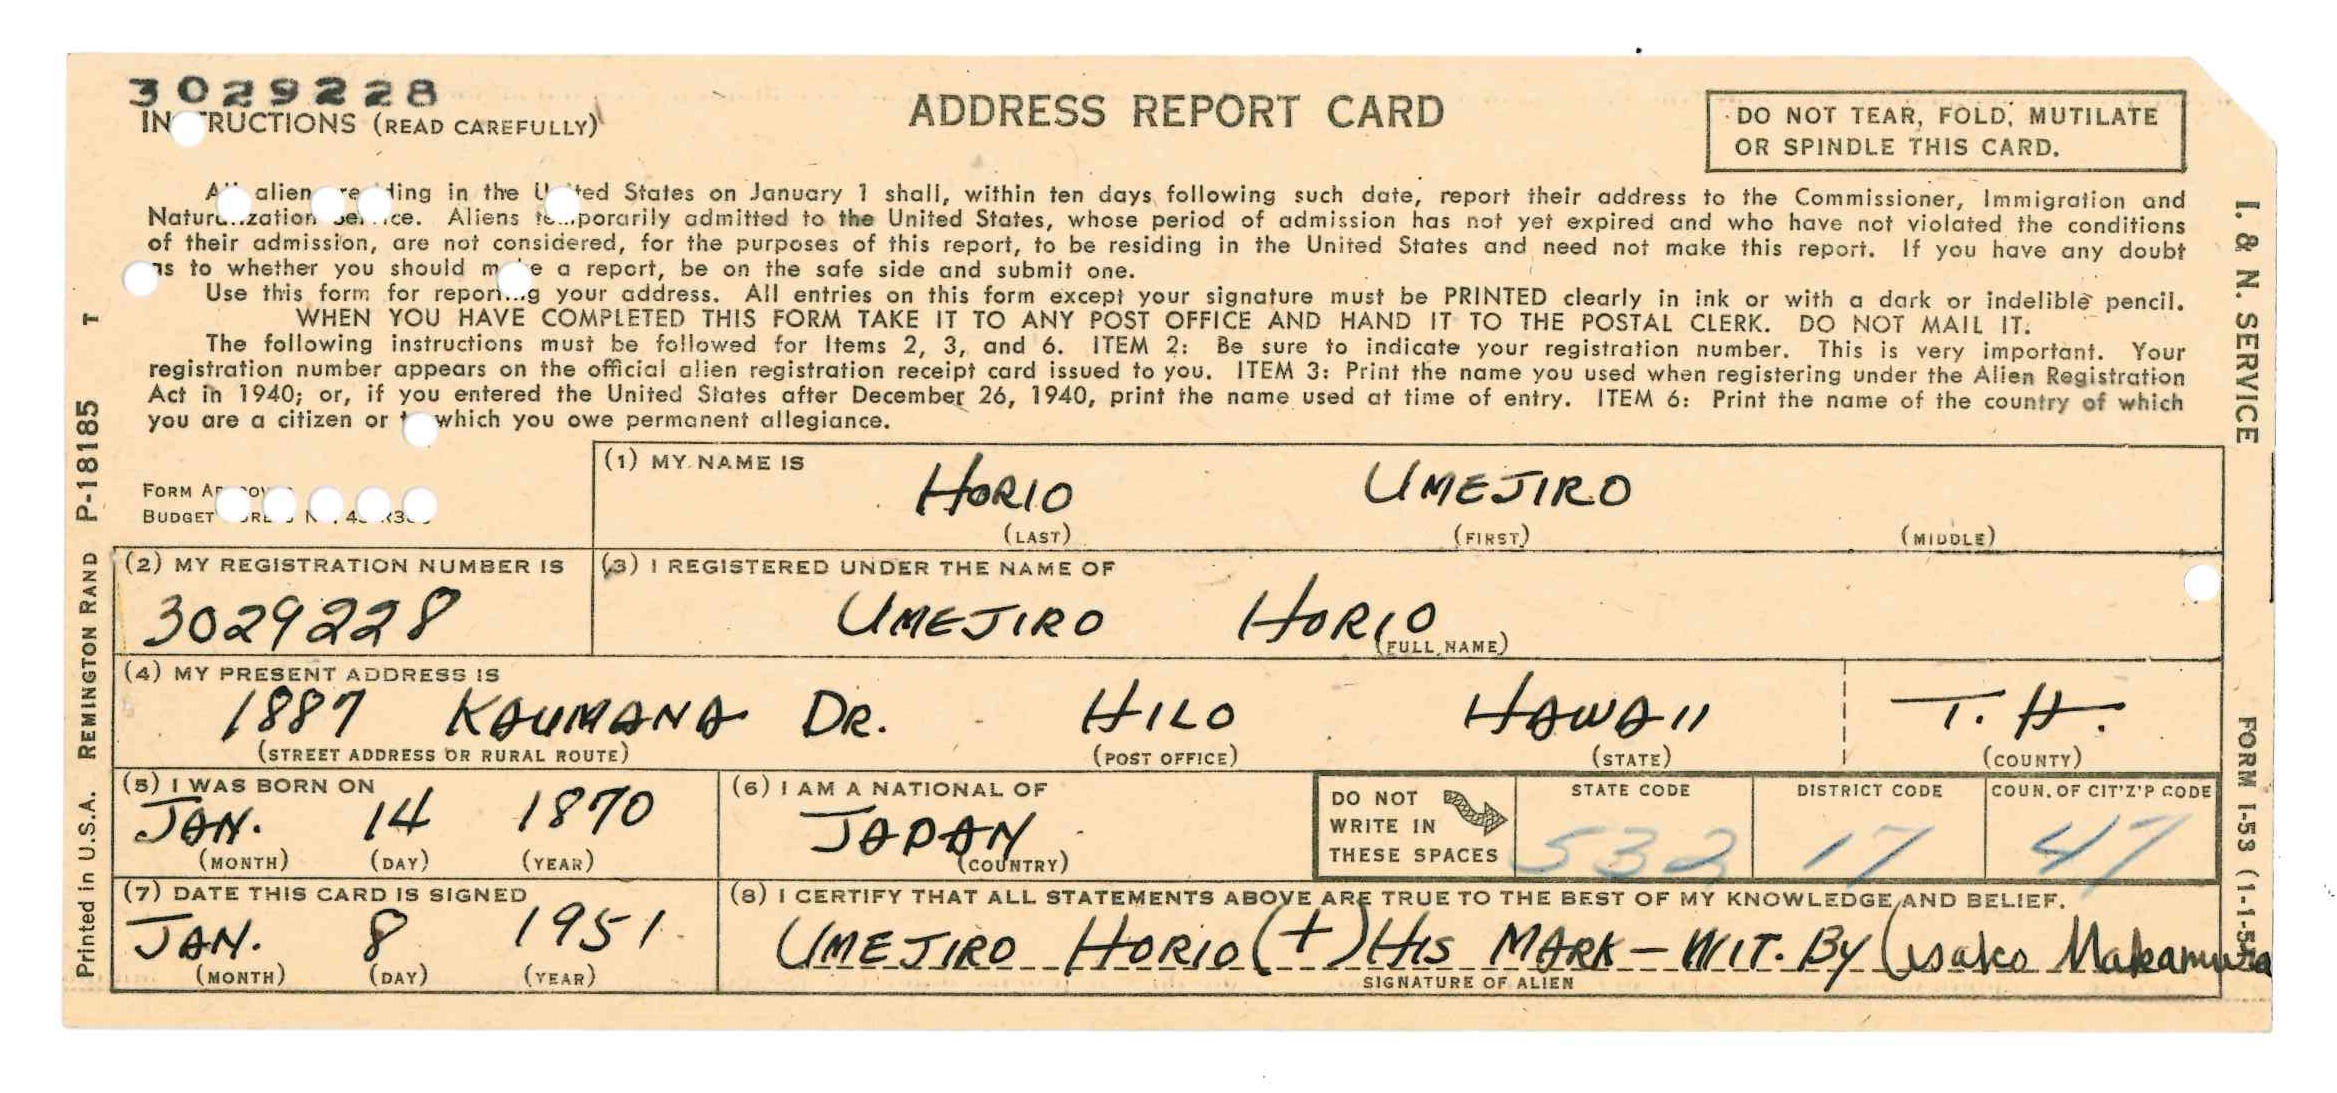 3029228
INSTRUCTIONS (READ CAREFULLY)
ADDRESS REPORT CARD
DO NOT TEAR, FOLD, MUTILATE
OR SPINDLE THIS CARD.
All aliens residing in the United States on January 1 shall, within ten days following such date, report their address to the Commissioner, Immigration and
Naturalization Service. Aliens temporarily admitted to the United States, whose period of admission has not yet expired and who have not violated the conditions
of their admission, are not considered, for the purposes of this report, to be residing in the United States and need not make this report. If you have any doubt
as to whether you should make a report, be on the safe side and submit one.
Use this form for reporting your address. All entries on this form except your signature must be PRINTED clearly in ink or with a dark or indelible pencil.
WHEN YOU HAVE COMPLETED THIS FORM TAKE IT TO ANY POST OFFICE AND HAND IT TO THE POSTAL CLERK. DO NOT MAIL IT.
The following instructions must be followed for Items 2, 3, and 6. ITEM 2: Be sure to indicate your registration number. This is very important. Your
registration number appears on the official alien registration receipt card issued to you. ITEM 3: Print the name you used when registering under the Alien Registration
Act in 1940; or, if you entered the United States after December 26, 1940, print the name used at time of entry. ITEM 6: Print the name of the country of which
you are a citizen or to which you owe permanent allegiance.
FORM APPROVED
BUDGET BUREAU NO.
(1) MY NAME IS
HORIO UMEJIRO
(LAST) (FIRST) (MIDDLE)
(2) MY REGISTRATION NUMBER IS
3029228
(3) I REGISTERED UNDER THE NAME OF
UMEJIRO HORIO
(FULL NAME)
(4) MY PRESENT ADDRESS IS
1887 KAUMANA DR. HILO HAWAII T. H.
(STREET ADDRESS OR RURAL ROUTE) (POST OFFICE) (STATE) (COUNTY)
(5) I WAS BORN ON
JAN. 14 1870
(MONTH) (DAY) (YEAR)
(6) I AM A NATIONAL OF
JAPAN
(COUNTRY)
DO NOT
WRITE IN
THESE SPACES
STATE CODE
532
DISTRICT CODE
17
COUN. OF CIT'Z'P CODE
47
(7) DATE THIS CARD IS SIGNED
JAN. 8 1951
(MONTH) (DAY) (YEAR)
(8) I CERTIFY THAT ALL STATEMENTS ABOVE ARE TRUE TO THE BEST OF MY KNOWLEDGE AND BELIEF.
UMEJIRO HORIO (+) HIS MARK - WIT. BY Nakamura
SIGNATURE OF ALIEN
Printed in U.S.A. REMINGTON RAND P-18185 T
I. & N. SERVICE FORM I-53